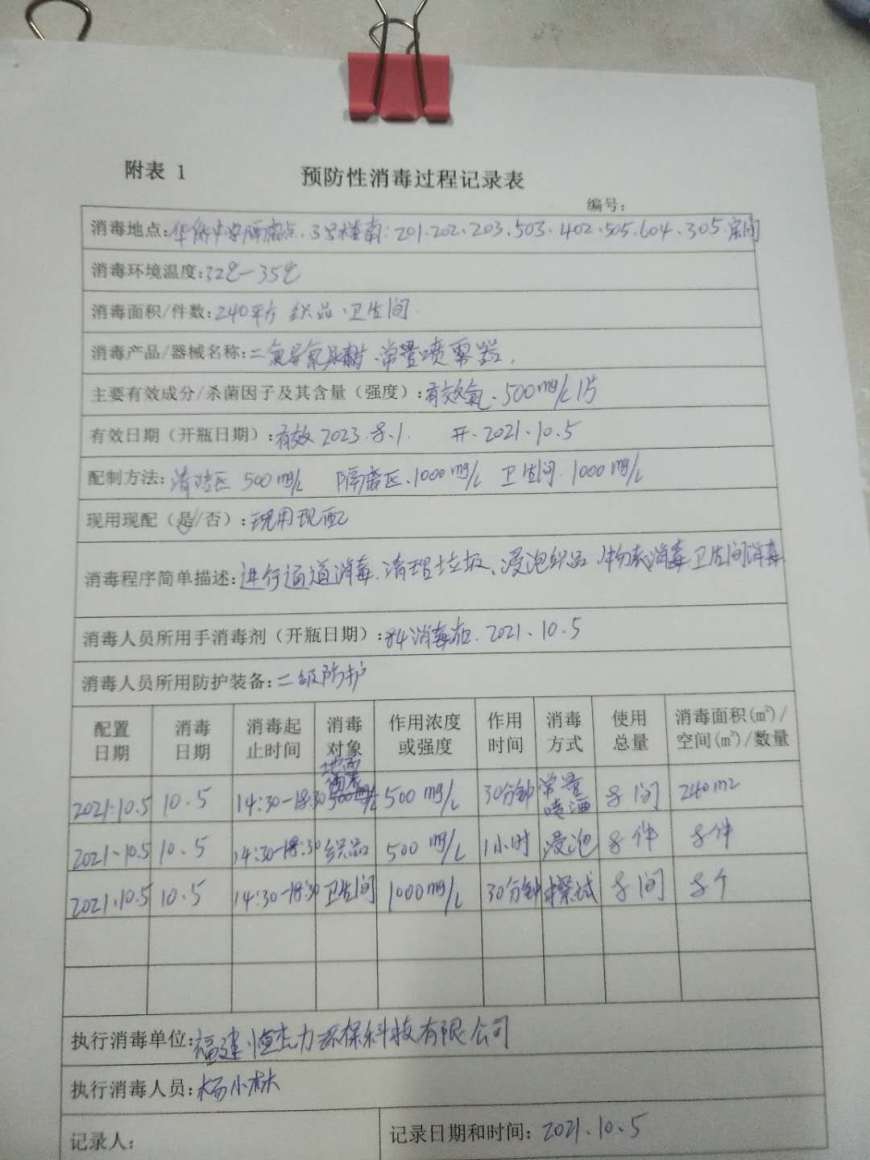 附表 1 预防性消毒过程记录表
编号:
消毒地点:华侨中学隔离点.3号楼南:201.202.203.503.402.505.604.305.房间
消毒环境温度:32℃-35℃
消毒面积/件数:240平方 织品.卫生间
消毒产品/器械名称:二氯异氰尿酸.常量喷雾器.
主要有效成分/杀菌因子及其含量(强度):有效氯.500mg/L 1片
有效日期(开瓶日期):有效 2023.8.1. 开.2021.10.5
配制方法:清洁区 500mg/L 隔离区.1000mg/L 卫生间.1000mg/L
现用现配(是/否):现用现配
消毒程序简单描述:进行通道消毒.清理垃圾、浸泡织品 物表消毒卫生间消毒
消毒人员所用手消毒剂(开瓶日期):84消毒液.2021.10.5
消毒人员所用防护装备:二级防护
配置日期 消毒日期 消毒起止时间 消毒对象 作用浓度或强度 作用时间 消毒方式 使用总量 消毒面积(㎡)/空间(㎡)/数量
2021.10.5 10.5 14:30-18:30 地面 500mg/L 30分钟 常量喷洒 8间 240m2
2021.10.5 10.5 14:30-18:30 织品 500mg/L 1小时 浸泡 8件 8件
2021.10.5 10.5 14:30-18:30 卫生间 1000mg/L 30分钟 擦拭 8间 8个
执行消毒单位:福建恒杰力环保科技有限公司
执行消毒人员:杨小林
记录人: 记录日期和时间:2021.10.5